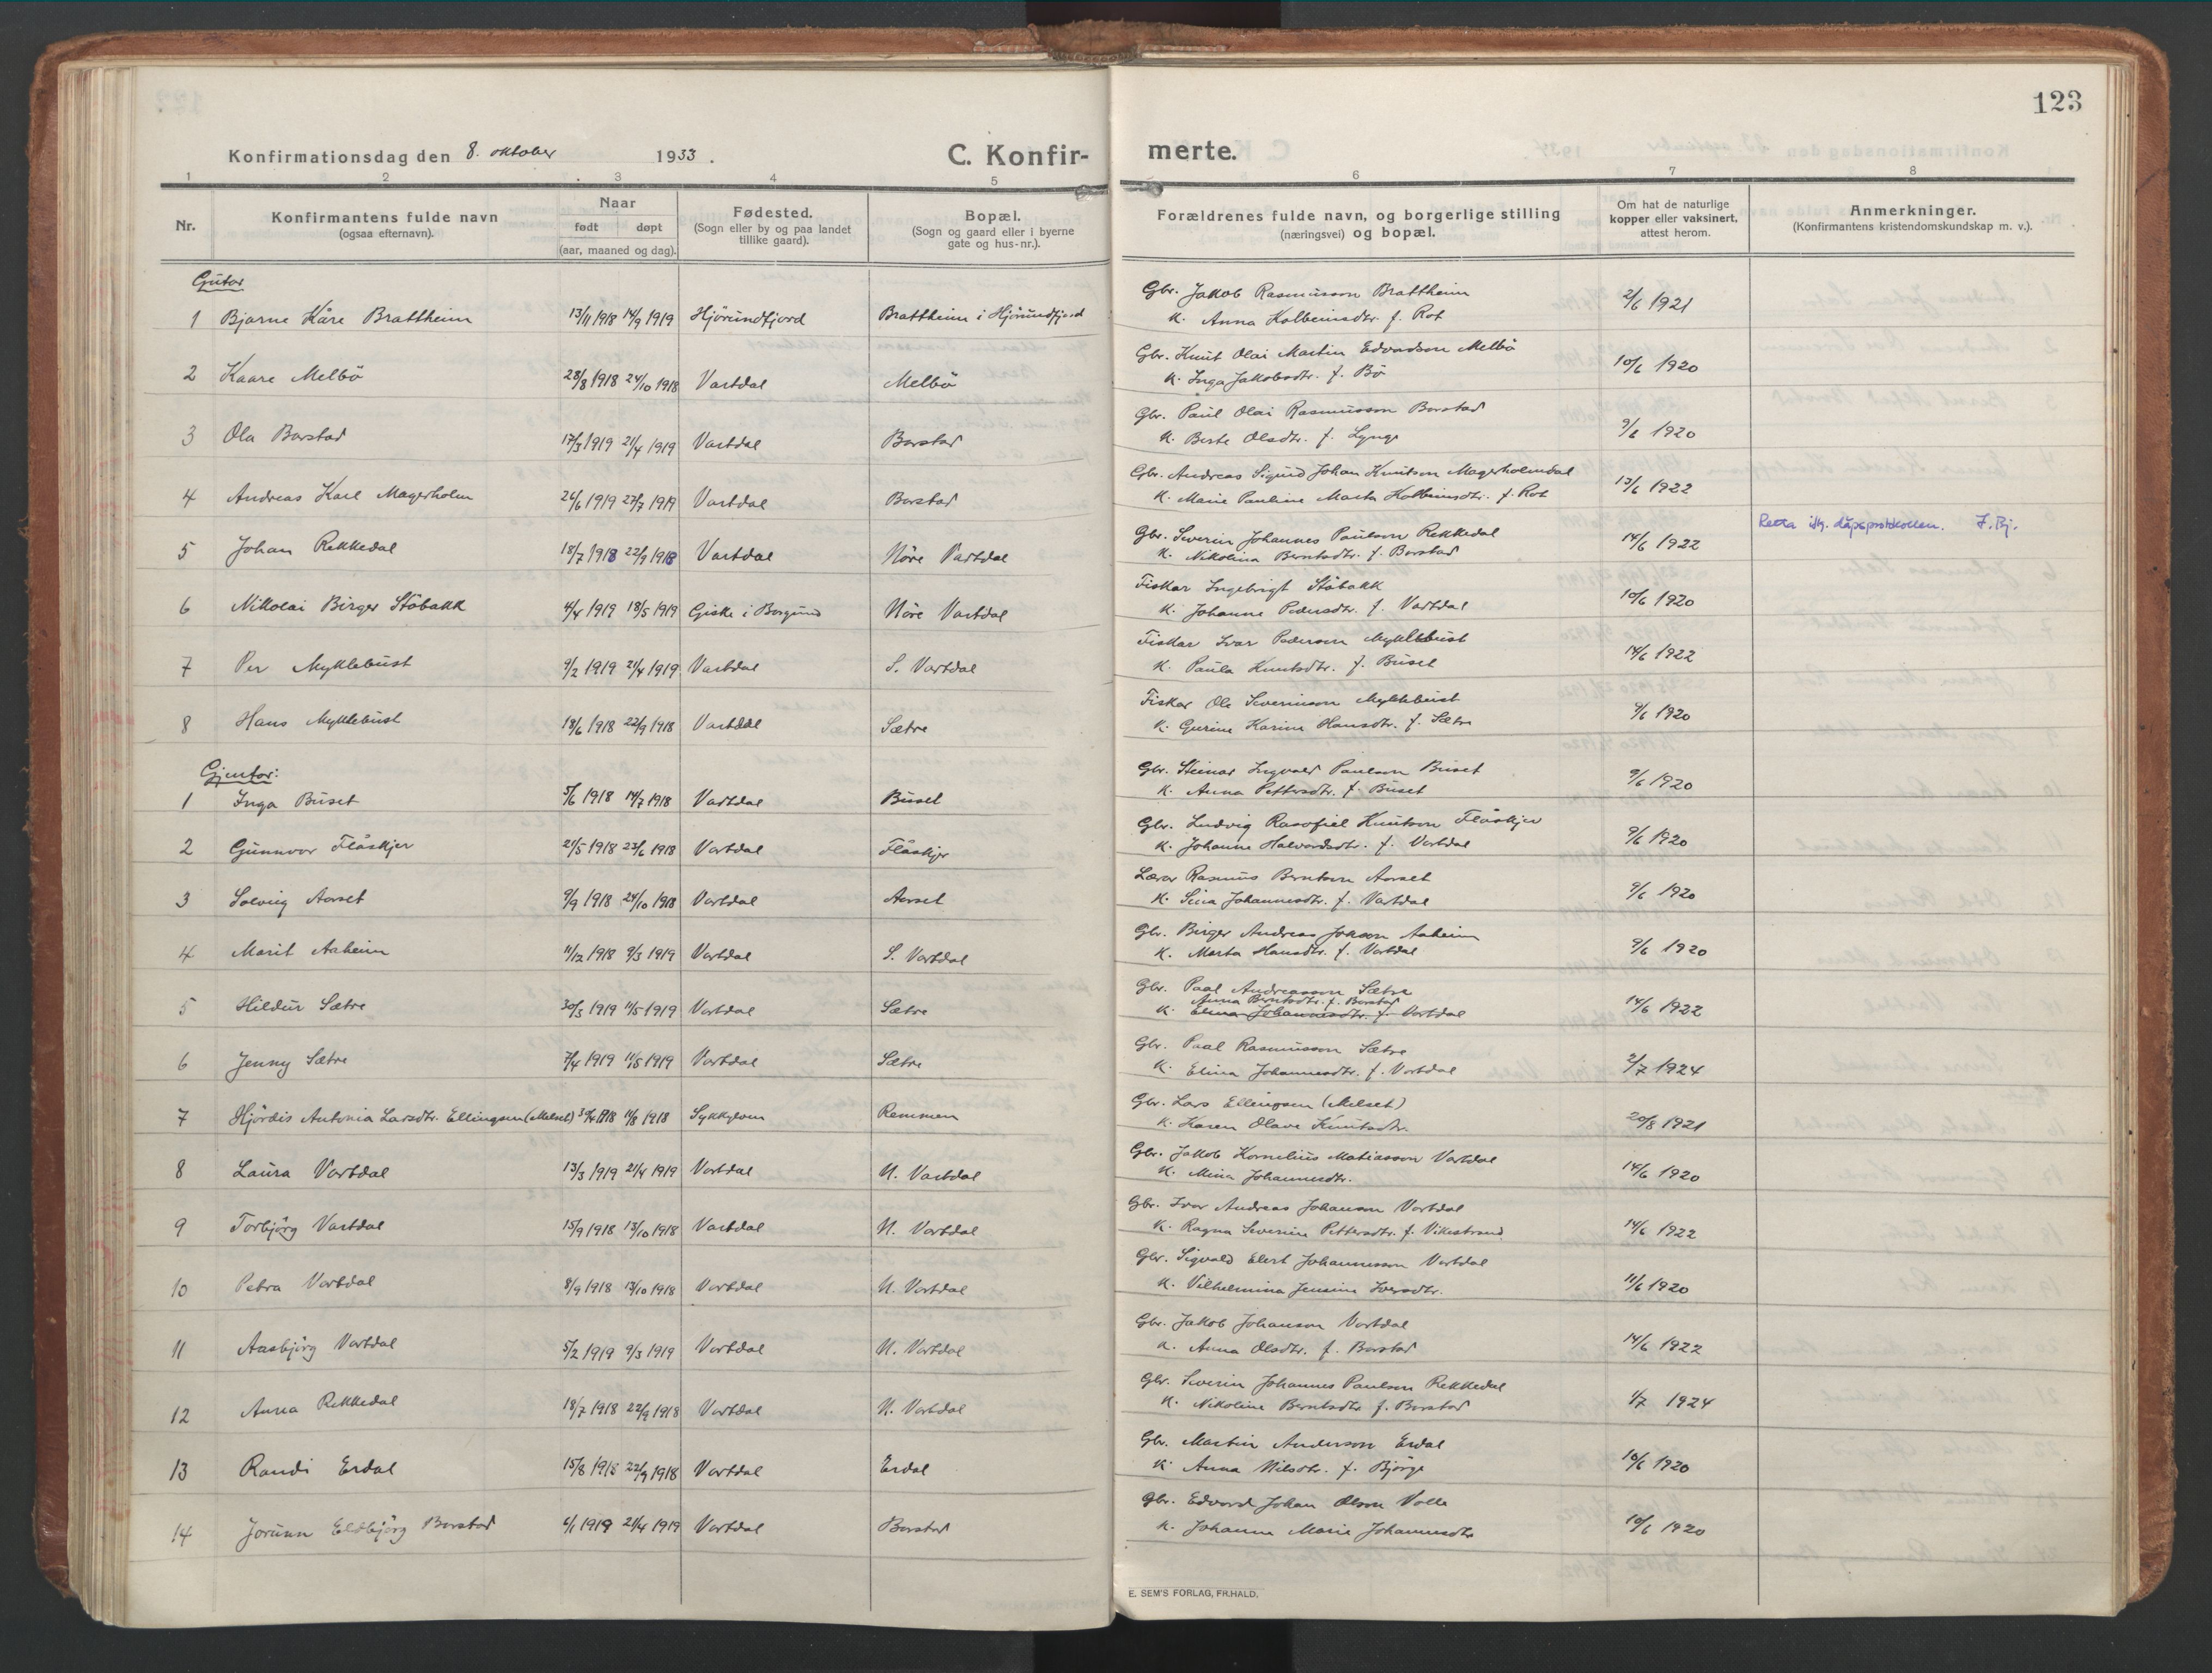 123
Konfirmationsdag den 8. oktober 1933.
C. Konfirmerte.
1 2 3 4 5 6 7 8
Nr.
Konfirmantens fulde navn
(ogsaa efternavn).
Naar
født døpt
(aar, maaned og dag).
Fødested.
(Sogn eller by og paa landet
tillike gaard).
Bopæl.
(Sogn og gaard eller i byerne
gate og hus-nr.).
Forældrenes fulde navn, og borgerlige stilling
(næringsvei) og bopæl.
Om hat de naturlige
kopper eller vaksinert,
attest herom.
Anmerkninger.
(Konfirmantens kristendomskundskap m. v.).
Gutar
1 Bjarne Kåre Brattheim 13/11 1918 14/9 1919 Hjörundfjord Brattheim i Hjörundfjord Gbr. Jakob Rasmusson Brattheim 2/6 1921
K. Anna Kolbeinsdtr. f. Rot
2 Kaare Melbö 28/8 1918 24/10 1918 Vartdal Melbö Gbr. Knut Olai Martin Edvardson Melbö 10/6 1920
K. Inga Jakobsdtr. f. Bö
3 Ola Barstad 17/3 1919 21/4 1919 Vartdal Barstad Gbr. Paul Olai Rasmusson Barstad 9/6 1920
K. Berte Olsdtr. f. Lynge
4 Andreas Karl Magerholm 26/6 1919 27/7 1919 Vartdal Barstad Gbr. Andreas Sigurd Johan Knutson Magerholmdal 13/6 1922
K. Marie Pauline Marta Kolbeinsdtr. f. Rot
5 Johan Rekkedal 18/7 1918 22/9 1918 Vartdal Nöre Vartdal Gbr. Severin Johannes Paulson Rekkedal 14/6 1922 Retta iflg. dåpsprotokollen. J. Bj.
K. Nikolina Berntsdtr. f. Barstad
6 Nikolai Birger Stöbakk 4/4 1919 18/5 1919 Giske i Borgund Nöre Vartdal Fiskar Ingebrigt Stöbakk 10/6 1920
K. Johanne Pedersdtr. f. Vartdal
7 Per Myklebust 9/2 1919 21/4 1919 Vartdal S. Vartdal Fiskar Ivar Pederson Myklebust 14/6 1922
K. Paula Knutsdtr. f. Buset
8 Hans Myklebust 18/6 1918 22/9 1918 Vartdal Sætre Fiskar Ole Severinson Myklebust 9/6 1920
K. Gurine Karine Hansdtr. f. Sætre
Gjentor:
1 Inga Buset 5/6 1918 14/7 1918 Vartdal Buset Gbr. Steinar Ingvald Paulson Buset 9/6 1920
K. Anna Pettersdtr. f. Buset
2 Gunnvor Flåskjer 21/5 1918 23/6 1918 Vartdal Flåskjer Gbr. Ludvig Rasofiel Knutson Flåskjer 9/6 1920
K. Johanne Halvardsdtr. f. Vartdal
3 Solveig Aarset 9/9 1918 24/10 1918 Vartdal Aarset Lærar Rasmus Berntson Aarset 9/6 1920
K. Sina Johannesdtr. f. Vartdal
4 Marit Aaheim 11/12 1918 9/3 1919 Vartdal S. Vartdal Gbr. Birger Andreas Jakson Aaheim 9/6 1920
K. Marta Hansdtr. f. Vartdal
5 Hildur Sætre 30/3 1919 11/5 1919 Vartdal Sætre Gbr. Paal Andreasson Sætre 14/6 1922
Anna Berntsdtr. f. Barstad
K. Elina Johannesdtr. f. Vartdal
6 Jenny Sætre 7/4 1919 11/5 1919 Vartdal Sætre Gbr. Paal Rasmusson Sætre 2/7 1924
K. Elina Johannesdtr. f. Vartdal
7 Hjördis Antonia Larsdtr. Ellingsen (Melset) 30/4 1918 11/8 1918 Sykkylven Remmen Gbr. Lars Ellingsen (Melset) 20/8 1921
K. Karen Olave Knutsdtr.
8 Laura Vartdal 13/3 1919 21/4 1919 Vartdal N. Vartdal Gbr. Jakob Kornelius Matiasson Vartdal 14/6 1920
K. Mina Johannesdtr.
9 Torbjörg Vartdal 15/9 1918 13/10 1918 Vartdal N. Vartdal Gbr. Ivar Andreas Johanson Vartdal 14/6 1922
K. Ragna Severine Pettersdtr. f. Vikestrand
10 Petra Vartdal 8/9 1918 13/10 1918 Vartdal N. Vartdal Gbr. Sigvald Elert Johannesson Vartdal 11/6 1920
K. Vilhelmina Jensine Iversdtr.
11 Aasbjörg Vartdal 5/2 1919 9/3 1919 Vartdal N. Vartdal Gbr. Jakob Johanson Vartdal 14/6 1922
K. Anna Olsdtr. f. Barstad
12 Aurea Rekkedal 18/7 1918 22/9 1918 Vartdal N. Vartdal Gbr. Severin Johannes Paulson Rekkedal 1/7 1924
K. Nikoline Berntsdtr f. Barstad
13 Randi Erdal 15/8 1918 22/9 1918 Vartdal Erdal Gbr. Martin Anderson Erdal 10/6 1920
K. Anna Nilsdtr. f. Bjørge
14 Jorunn Eldbjörg Barstad 6/1 1919 21/4 1919 Vartdal Barstad Gbr. Edvard Johan Olson Volle 10/6 1920
K. Johanne Marie Johannesdtr
E. SEM'S FORLAG, FR.HALD.